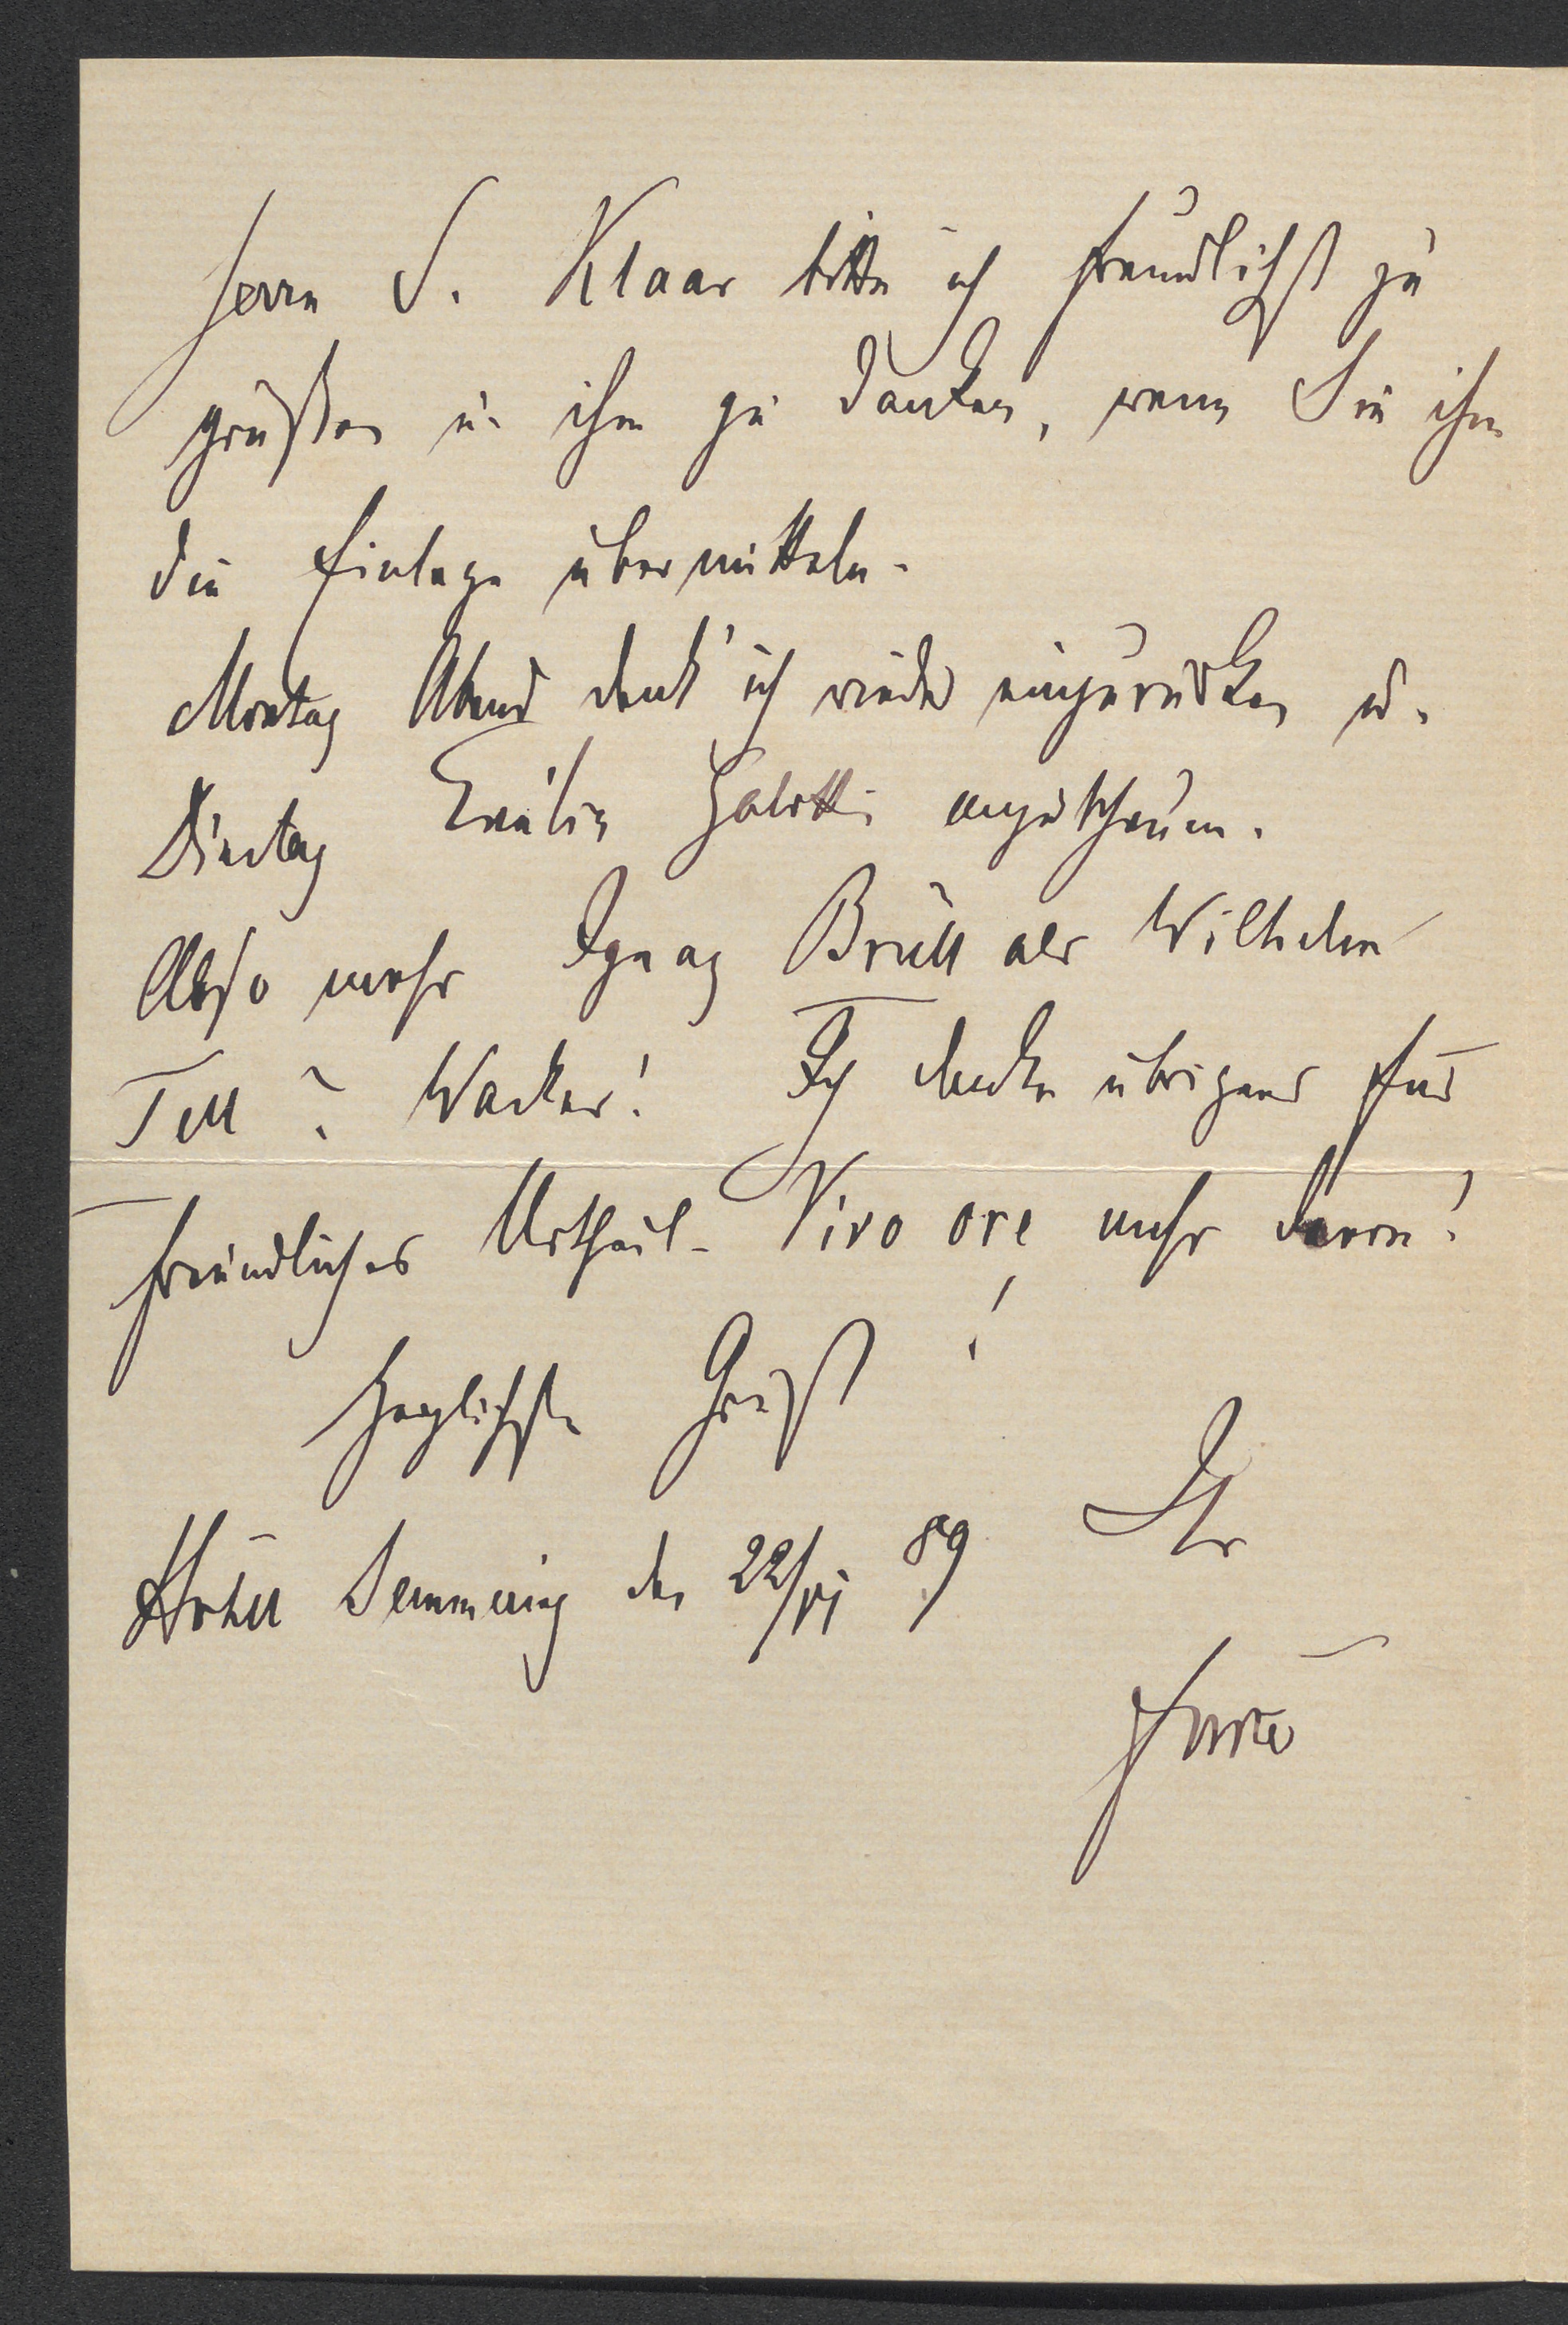 Herrn S. Klaar bitte ich freundlichst zu
grüßen u. ihm zu danken, wenn Sie ihm
die Einlage übermitteln.
Montag Abend denk' ich wieder einzurücken u.
Dinstag Emilia Galotti anzuschauen.
Also mehr Ignaz Brüll als Wilhelm
Tell? Wacker! Ich danke übrigens für
freundliches Urtheil. Vivo ore mehr davon!
Herzlichste Grüße!
Ihr
Hotel Semmering den 22/VI 89